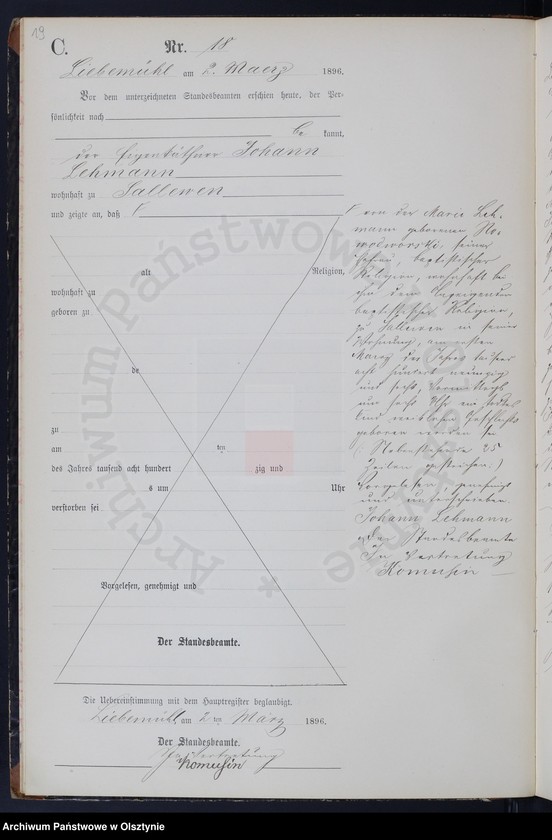 19
C.
Nr. 18
Liebemühl am 2. Maerz 1896.
Vor dem unterzeichneten Standesbeamten erschien heute, der Per-
sönlichkeit nach
be kannt,
der Eigenthümer Johann
Lehmann
wohnhaft zu Sallewen
und zeigte an, daß
alt Religion,
wohnhaft zu
geboren zu
de
zu
am ten
des Jahres tausend acht hundert zig und
s um Uhr
verstorben sei
Vorgelesen, genehmigt und
Der Standesbeamte.
von der Marie Leh-
mann geborenen
seiner
Ehefrau, baptistischer
Religion, wohnhaft bei
ihm dem
baptistischer Religion,
zu Sallewen in seiner
Wohnung, am ersten
Maerz des Jahres tausend
acht hundert neunzig
und sechs, Vormittags
um sechs Uhr ein todtes
Kind weiblichen Geschlechts
geboren worden sei
(Nebenstehende 25
Zeilen gestrichen.)
Vorgelesen, genehmigt
und unterschrieben
Johann Lehmann
Der Standesbeamte
In Vertretung
Komusin
Die Uebereinstimmung mit dem Hauptregister beglaubigt.
Liebemühl am 2 ten März 1896.
Der Standesbeamte.
In Vertretung
Komusin
Archiwum Państwowe w Olsztynie
Archiwum Państwowe w Olsztynie